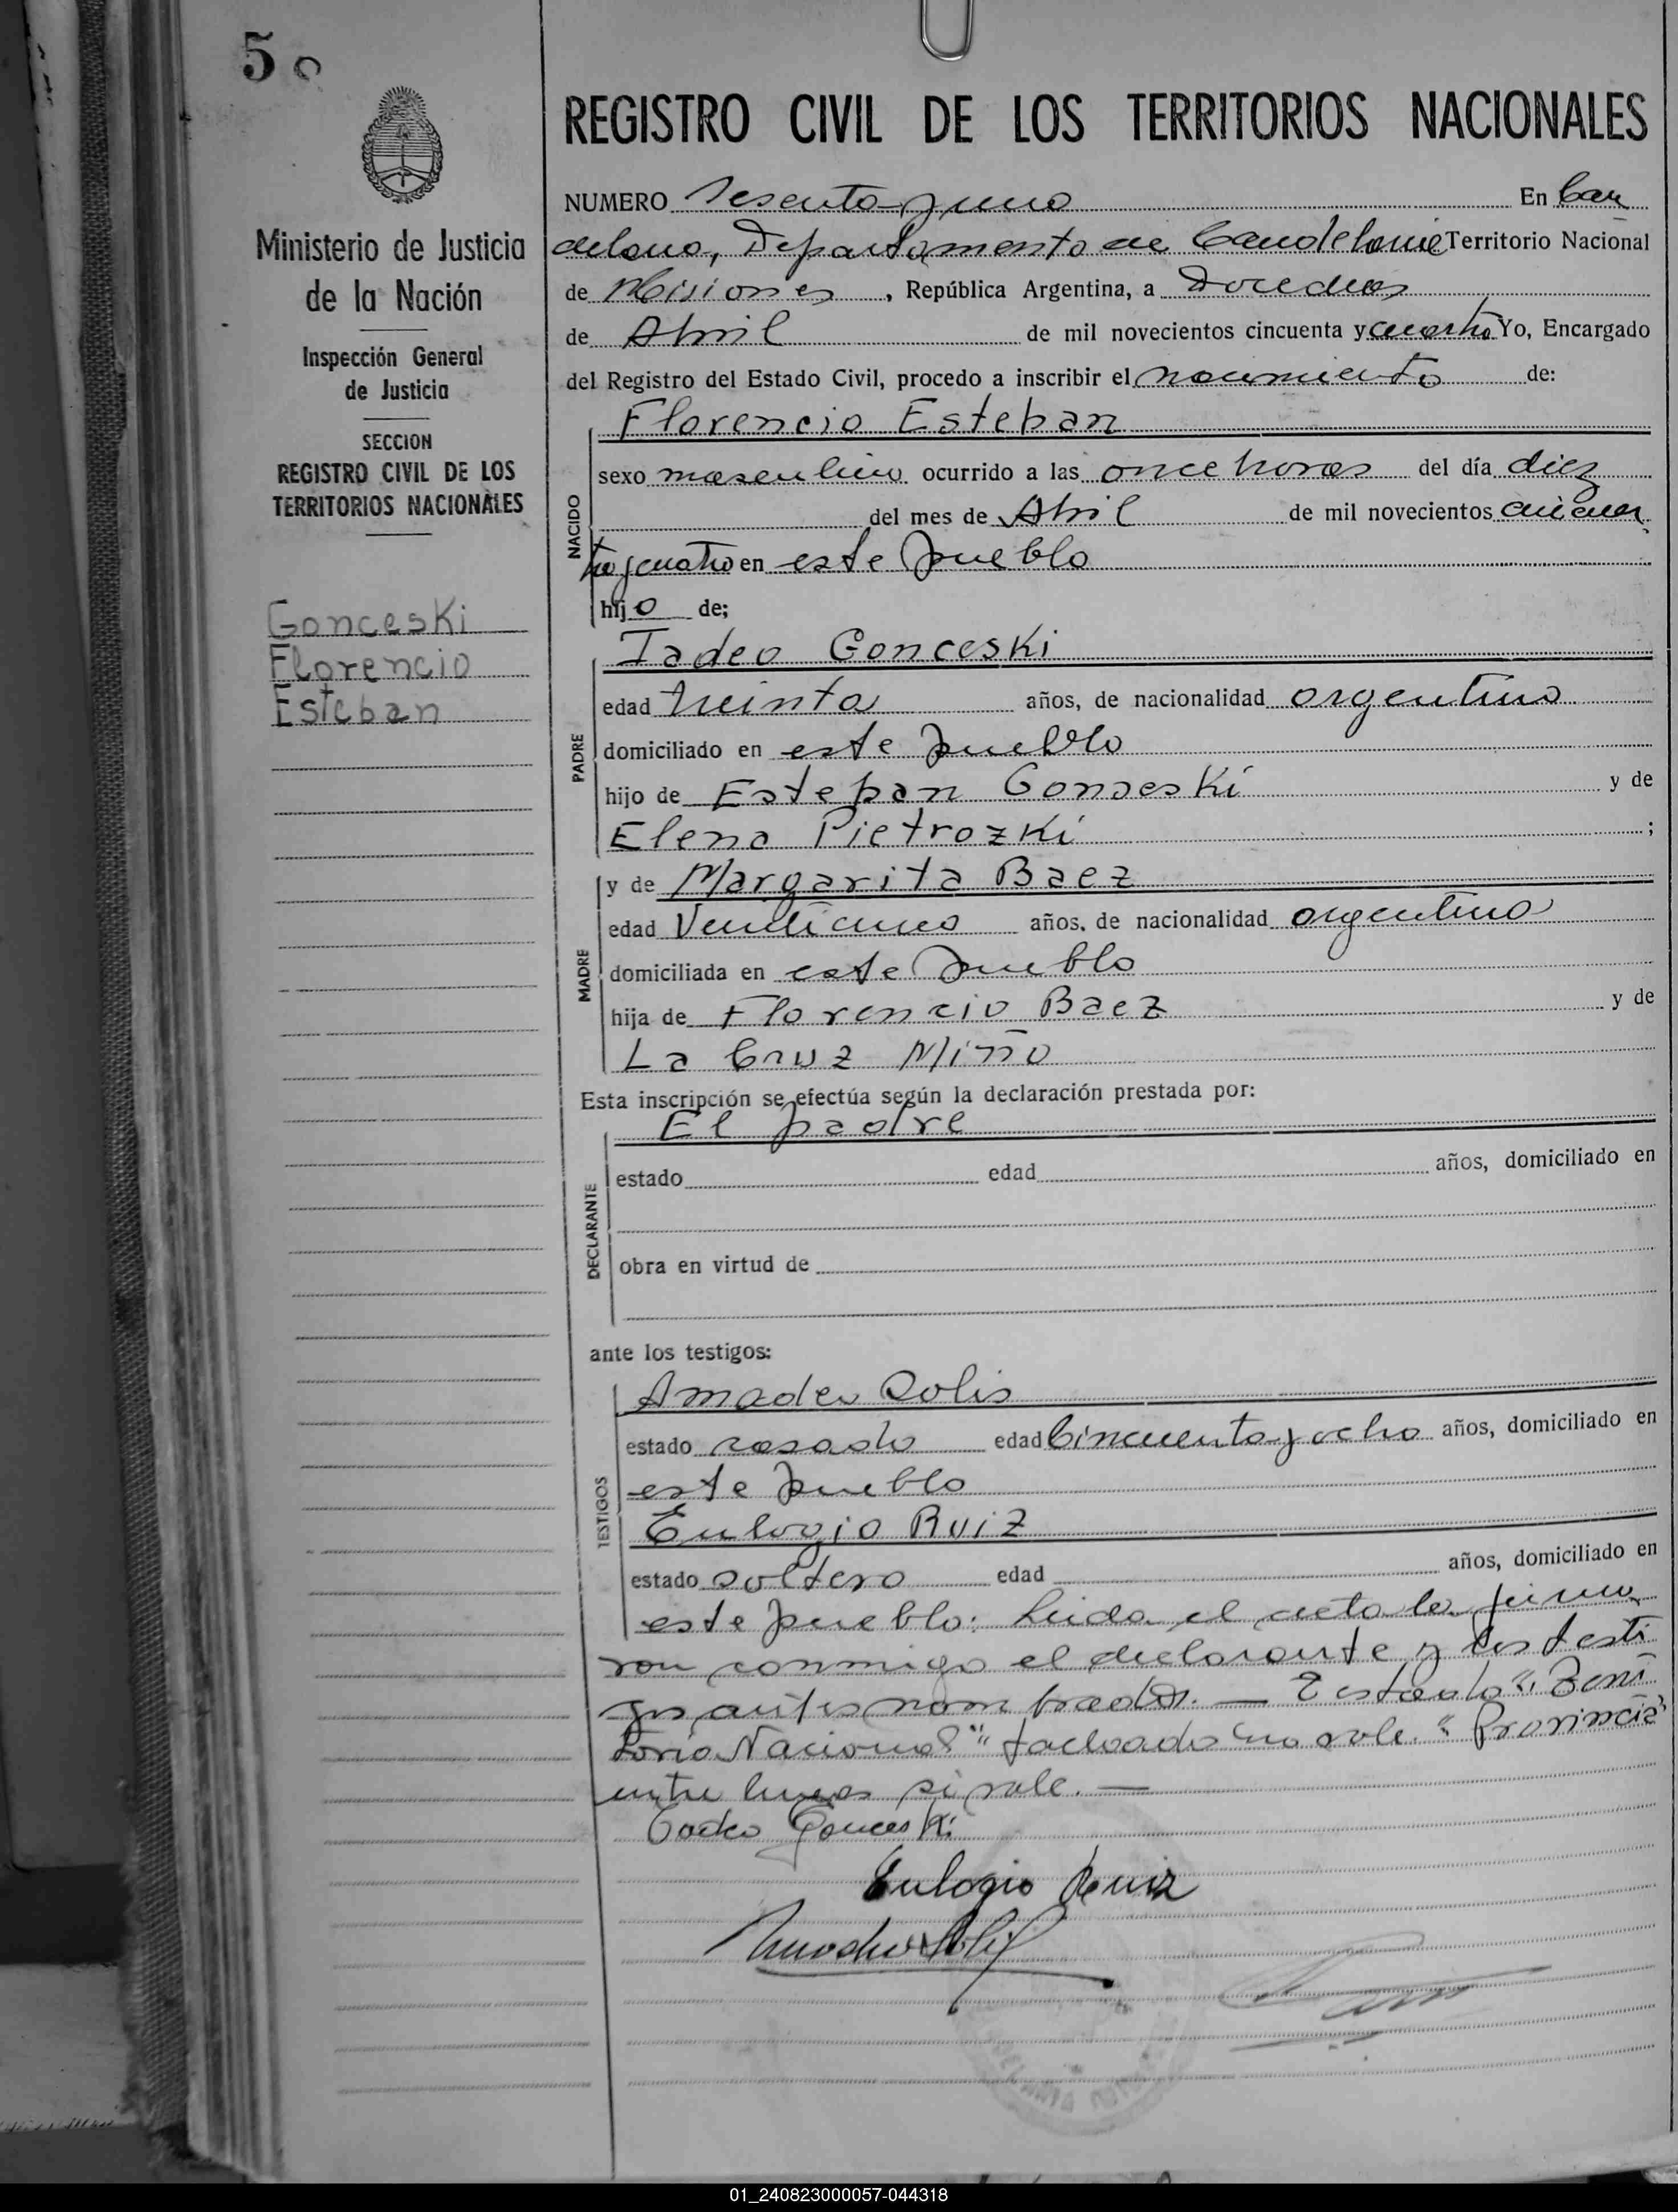 50
Ministerio de Justicia
de la Nación
Inspección General
de Justicia
SECCION
REGISTRO CIVIL DE LOS
TERRITORIOS NACIONALES
Gonceski
Florencio
Esteban
REGISTRO CIVIL DE LOS TERRITORIOS NACIONALES
NUMERO Sesenta y uno En Can
delaria, Departamento de Candelaria Territorio Nacional
de Misiones, República Argentina, a Doce dias
de Abril de mil novecientos cincuenta y cuatro Yo, Encargado
del Registro del Estado Civil, procedo a inscribir el nacimiento de:
Florencio Esteban
NACIDO
sexo masculino ocurrido a las once horas del día diez
del mes de Abril de mil novecientos cincuen
ta y cuatro en este pueblo
hijo de;
Tadeo Gonceski
PADRE
edad treinta años, de nacionalidad argentino
domiciliado en este pueblo
hijo de Esteban Gonceski y de
Elena Pietrozki ;
y de Margarita Baez
MADRE
edad Veintiuno años, de nacionalidad argentina
domiciliada en este pueblo
hija de Florencio Baez y de
La Cruz Miño
Esta inscripción se efectúa según la declaración prestada por:
El padre
DECLARANTE
estado edad años, domiciliado en
obra en virtud de
ante los testigos:
Amadeo Solis
TESTIGOS
estado casado edad Cincuenta y ocho años, domiciliado en
este pueblo
Eulogio Ruiz
estado soltero edad años, domiciliado en
este pueblo: Leida el acta la firma
ron conmigo el declarante y los testi
gos antes nombrados. —
torio Nacional" tachado no vale. "Provincia"
entre lineas si vale. —
Tadeo Gonceski
Eulogio Ruiz
Amadeo Solis
01_240823000057-044318